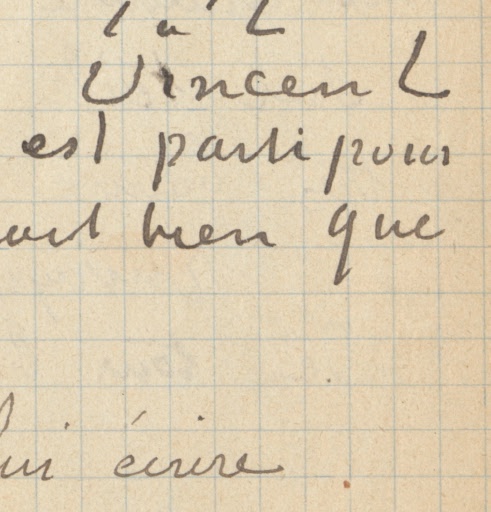 Vincent
est parti pour
bien que
lui écrire